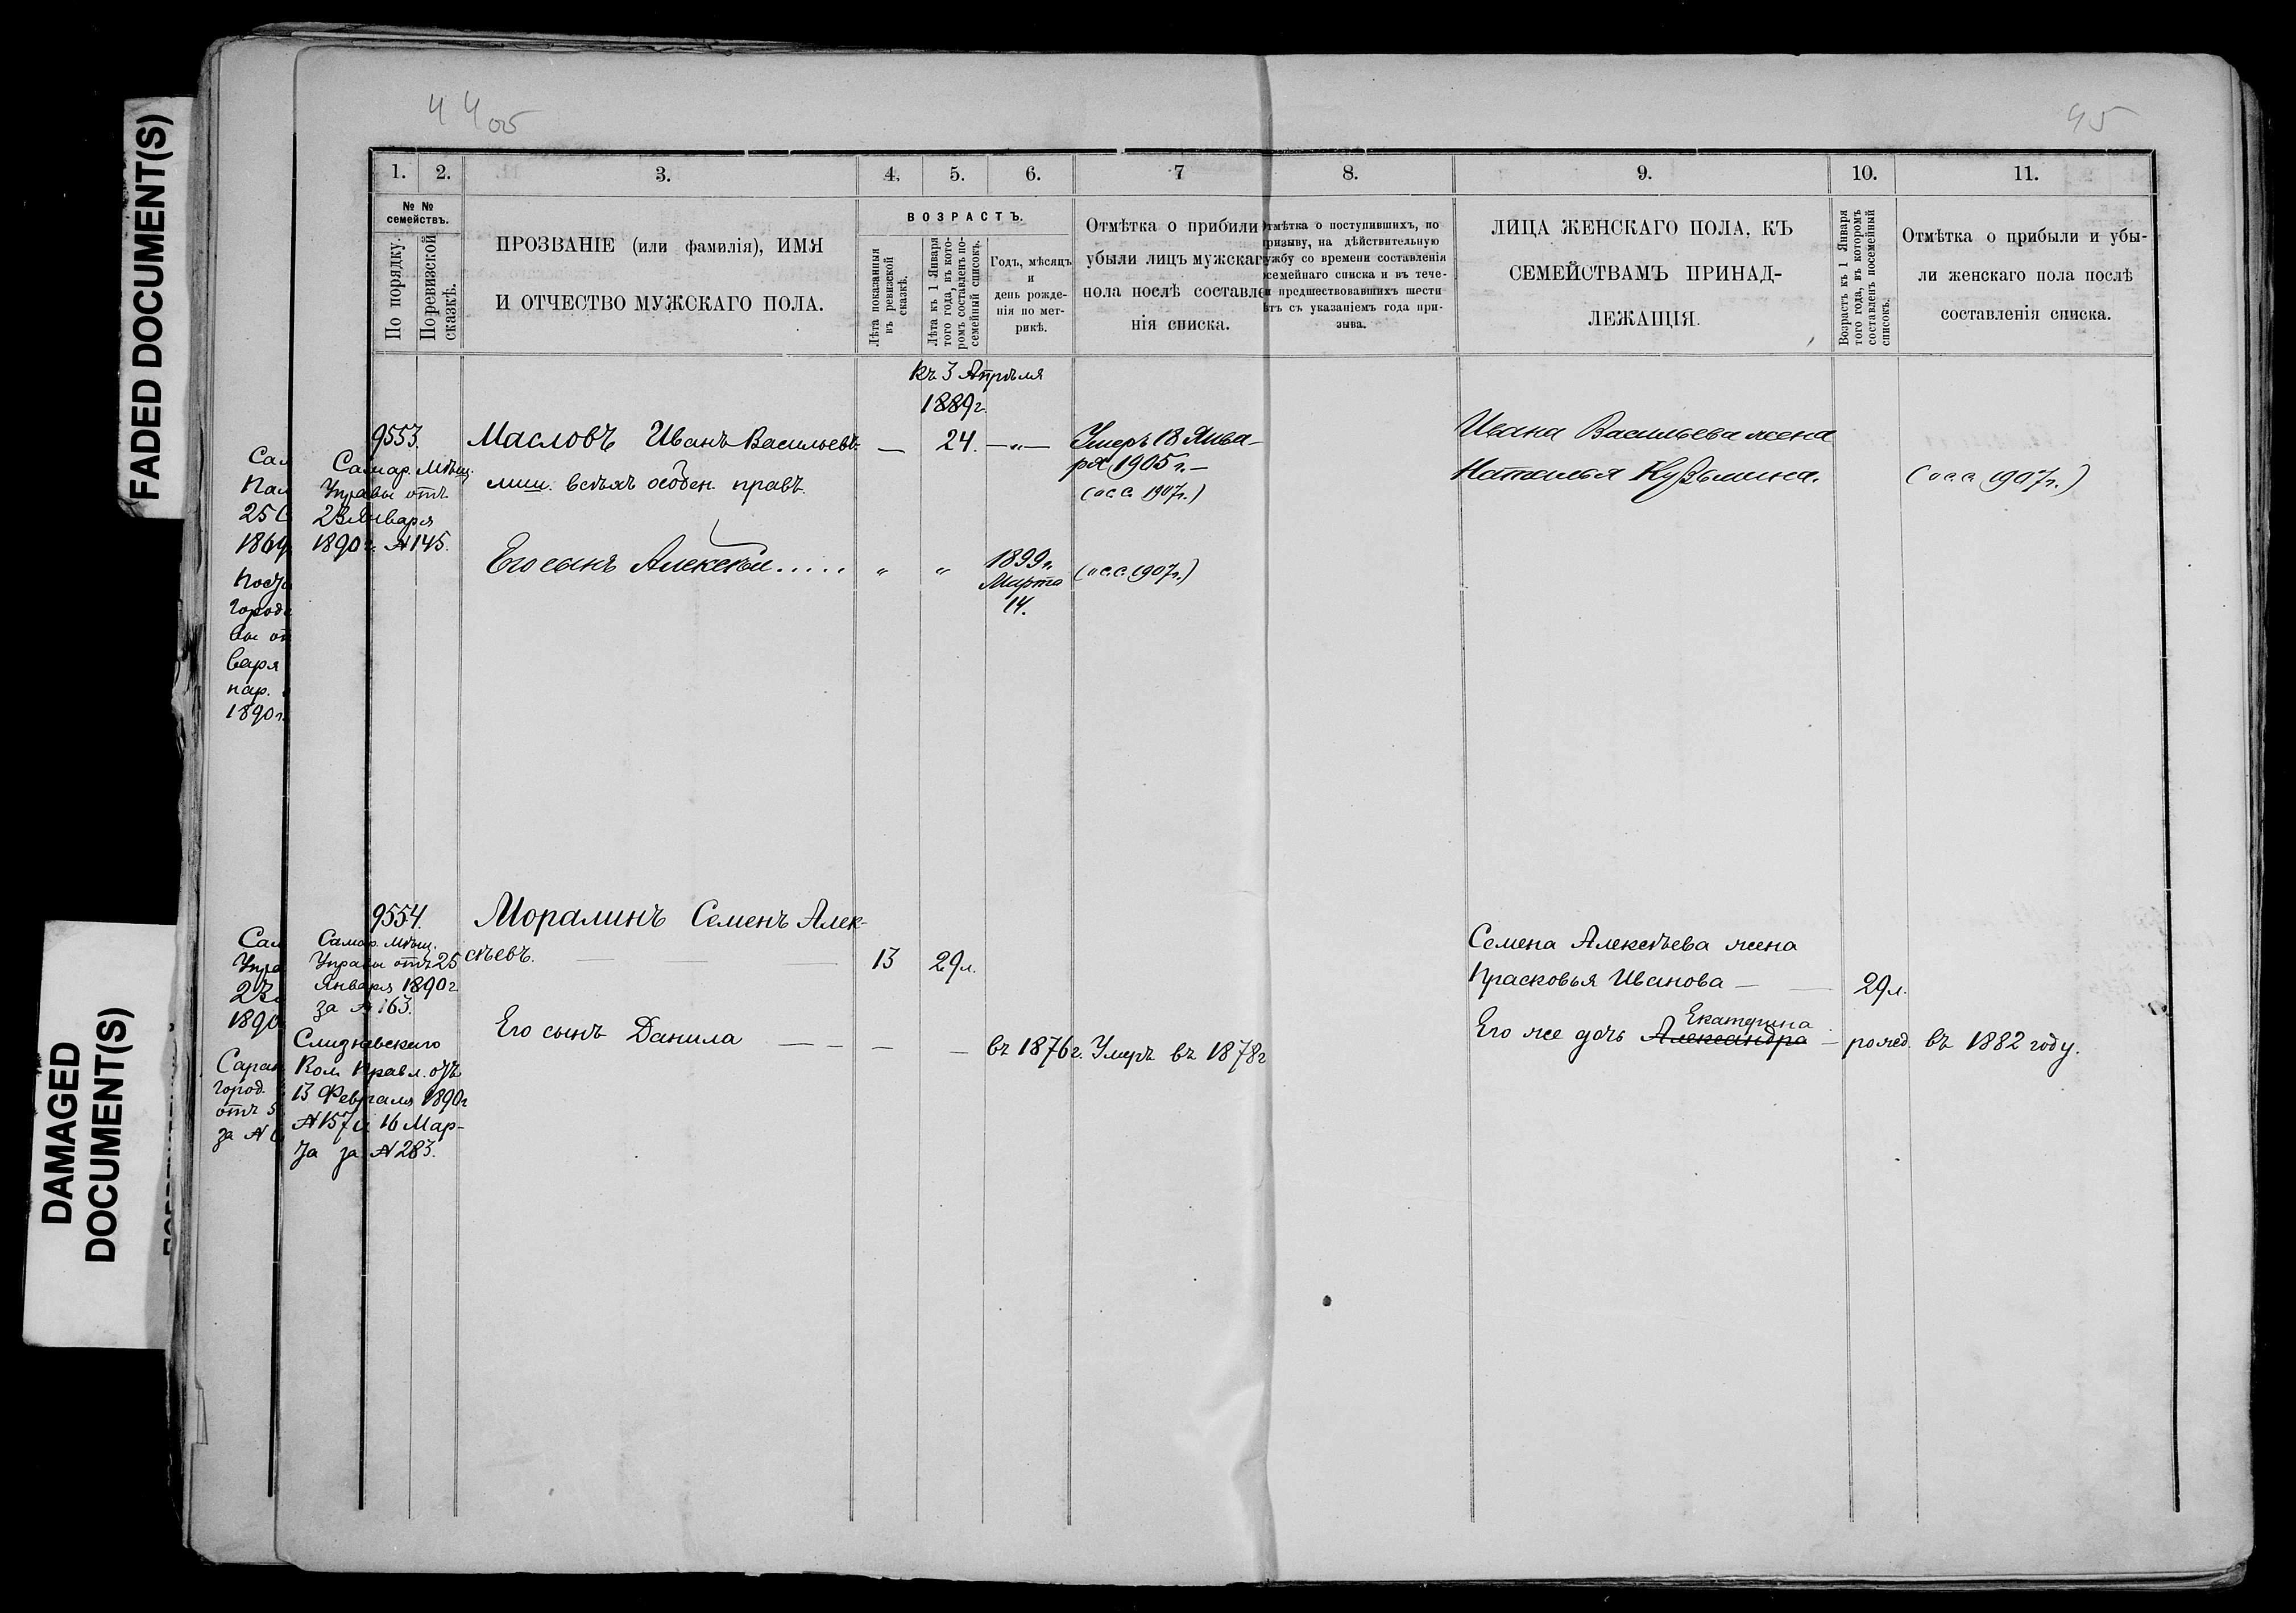 FADED DOCUMENT(S)
DAMAGED
DOCUMENT(S)
44 об
45
1. 2. 3. 4. 5. 6. 7 8. 9. 10. 11.
№ №
семействъ.
По порядку.
По ревизской
сказкѣ.
ПРОЗВАНІЕ (или фамилія), ИМЯ
И ОТЧЕСТВО МУЖСКАГО ПОЛА.
ВОЗРАСТЪ.
Лѣта показанныя
въ ревизской
сказкѣ.
Лѣта къ 1 Января
того года, въ кото-
ромъ составленъ по-
семейный списокъ.
Годъ, мѣсяцъ
и
день рожде-
нія по мет-
рикѣ.
Отмѣтка о прибили
убыли лицъ мужскаг
пола послѣ составле
нія списка.
тмѣтка о поступившихъ, по
ризыву, на дѣйствительную
ужбу со времени составленія
семейнаго списка и въ тече-
и предшествовавшихъ шести
ѣтъ съ указаніемъ года при-
зыва.
ЛИЦА ЖЕНСКАГО ПОЛА, КЪ
СЕМЕЙСТВАМЪ ПРИНАД-
ЛЕЖАЩІЯ.
Возрастъ къ 1 Января
того года, въ которомъ
составленъ посемейный
списокъ.
Отмѣтка о прибыли и убы-
ли женскаго пола послѣ
составленія списка.
къ 3 Апрѣля
1889 г.
9553.
Самар. Мѣщ.
Управы отъ
23 Января
1890 г. № 145.
Масловъ Иванъ Васильевъ — 24. —„—
лиш. всѣхъ особен. правъ.
Умеръ 18 Янва-
ря 1905 г. —
(о с.с. 1907 г.)
Ивана Васильева жена
Наталья Кузьмина. (о с.с. 1907 г.)
Его сынъ Алексѣй..... „ „ 1899 г.
Марта
14.
(о с.с. 1907 г.)
Сам
Пал
25 С
1869
Поста
Город
вы от
варя
пар.
1890 г.
9554.
Самар. Мѣщ.
Управы отъ 25
Января 1890 г
за № 163.
Ком Правл. отъ
13 Февраля 1890 г
№ 157 и 16 Мар-
та за № 283.
Моралинъ Семенъ Алек-
сѣевъ. — — — 13 29 л.
Семена Алексѣева жена
Прасковья Иванова — — 29 л.
Его сынъ Данила — — — — въ 1876 г. Умеръ въ 1878 г
Екатерина
Его же дочь Александра — рожд. въ 1882 году.
Сам
Упра
23
1890
Саран
город.
отъ 5
за №